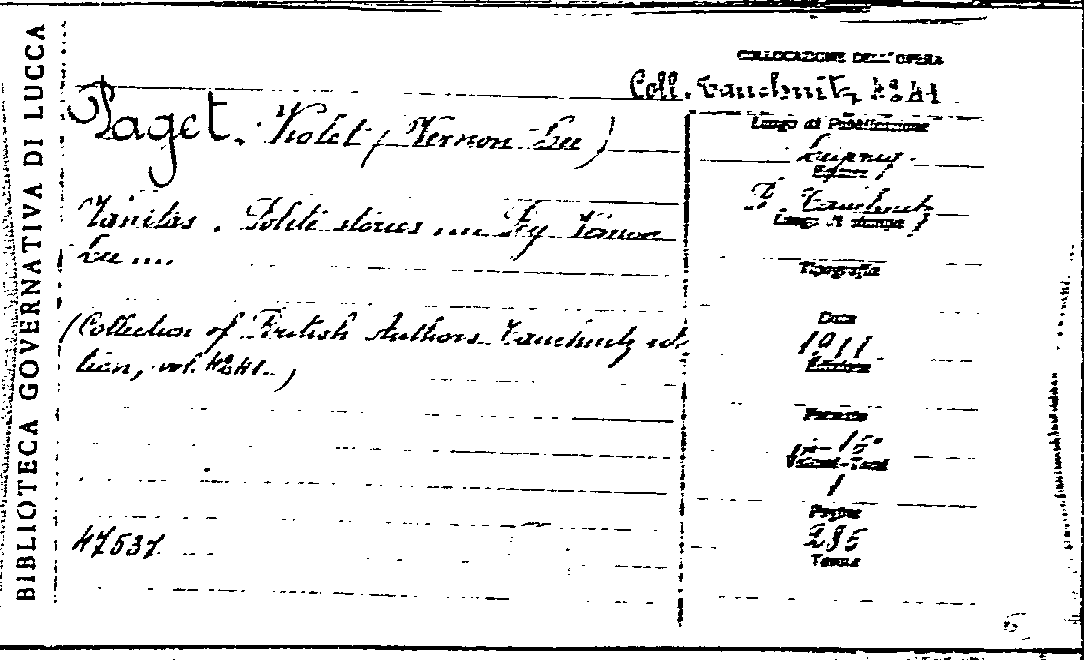 BIBLIOTECA GOVERNATIVA DI LUCCA
COLLOCAZIONE DELL'OPERA
Coll. Tauchnitz 4241
Paget. Violet (Vernon Lee)
Vanitas. Polite stories .... By Vernon
Lee ....
(Collection of British Authors Tauchnitz edi-
tion, vol. 4241.)
47537
Luogo di Pubblicazione
Leipzig.
Editore
B. Tauchnitz
Luogo di stampa
Tipografia
Data
1911
Edizione
Formato
in-16°
Volumi-Tomi
1
Pagine
285
Tavole